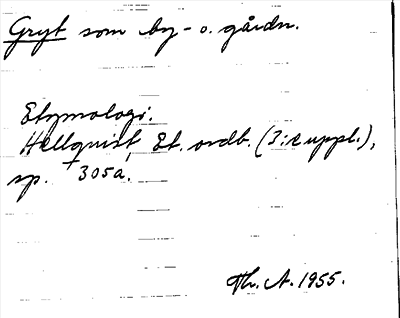 Gryt som by- o. gårdn.
Etymologi.
Hellquist, Et. ordb. (3:e uppl.),
sp. 305a.
Th. A. 1955.